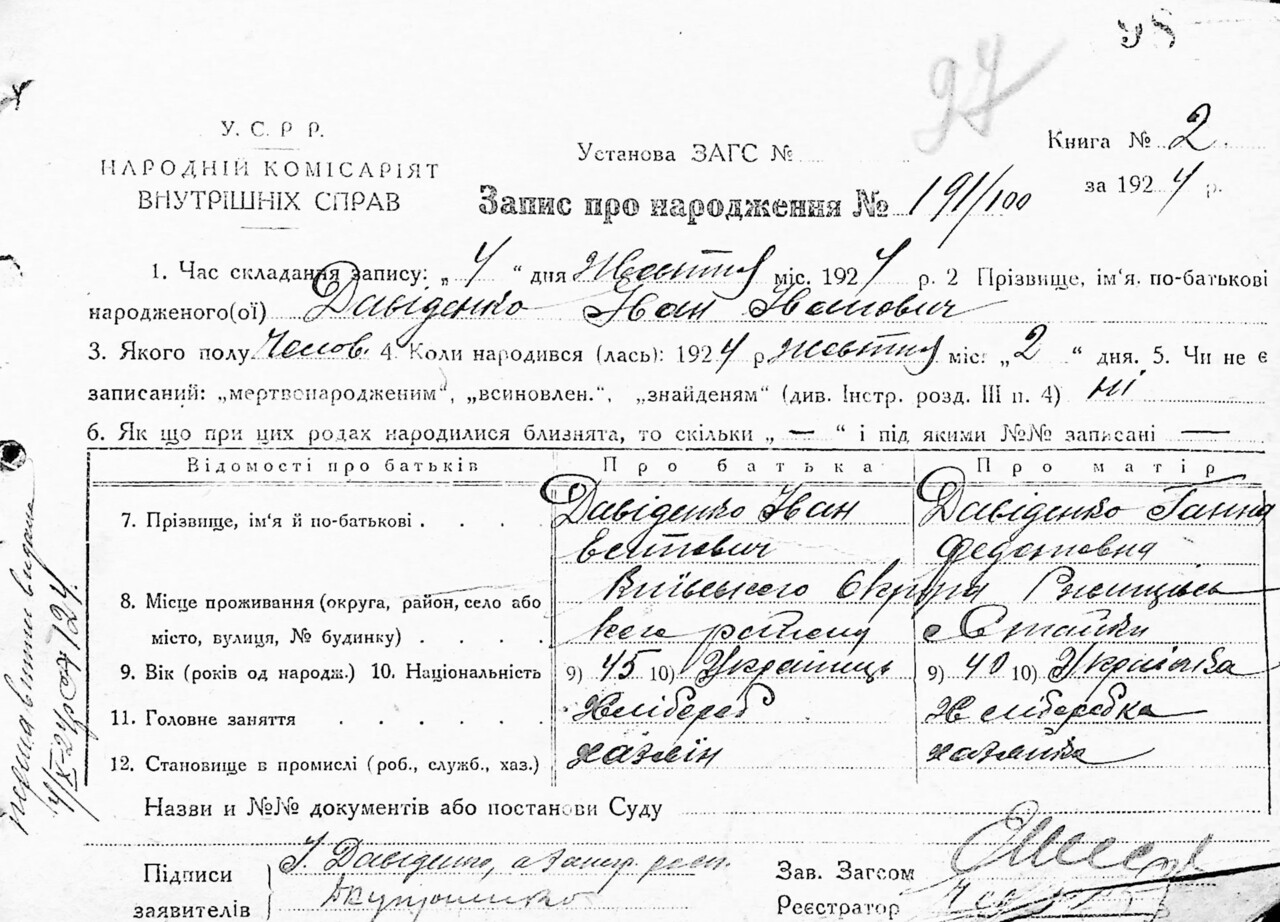 98
97
У. С. Р Р.
НАРОДНІЙ КОМІСАРІЯТ
ВНУТРІШНІХ СПРАВ
Установа ЗАГС №
Книга № 2
за 1924 р.
Запис про народження № 191/100
1. Час складання запису: „ 4 “ дня Жовтня міс. 1924 р. 2 Прізвище, ім'я, по-батькові
народженого(ої) Давіденко Іван Іванович
3. Якого полу Чолов. 4. Коли народився (лась): 1924 р. жовтня міс: „ 2 “ дня. 5. Чи не є
записаний: „мертвонародженим“, „всиновлен.“, „знайденям“ (див. Інстр. розд. III п. 4) ні
6. Як що при цих родах народилися близнята, то скільки „ — “ і під якими №№ записані —
Відомості про батьків Про батька Про матір
7. Прізвище, ім'я й по-батькові . . . . Давіденко Іван Давіденко Ганна
Федотовна
8. Місце проживання (округа, район, село або Київського Округи
місто, вулиця, № будинку) . . . . кого району с Стайки
9. Вік (років од народж.) 10. Національність 9) 45 10) Українець 9) 40 10) Українка
11. Головне заняття . . . . . . Хлібороб Хліборобка
12. Становище в промислі (роб., служб., хаз.) хазяїн хазяйка
Назви и №№ документів або постанови Суду
Підписи
заявителів
І. Давіденко,
Зав. Загсом
Реєстратор